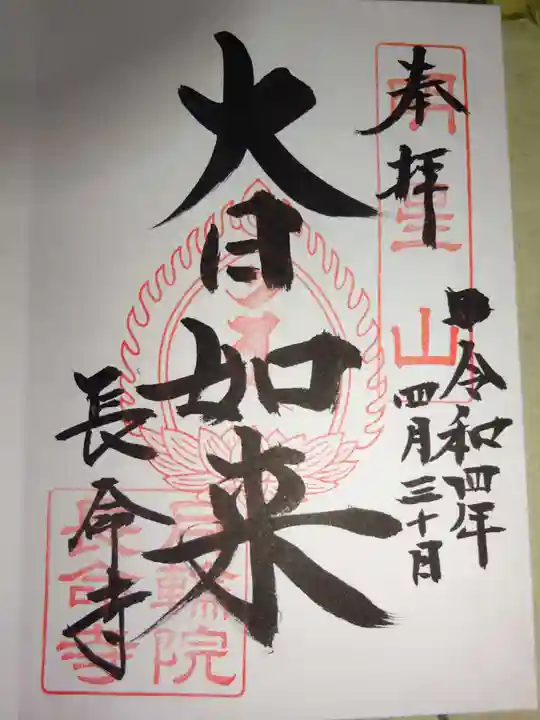 奉拝
令和四年
四月三十日
大日如来
長命寺
明星山
月輪院
長命寺